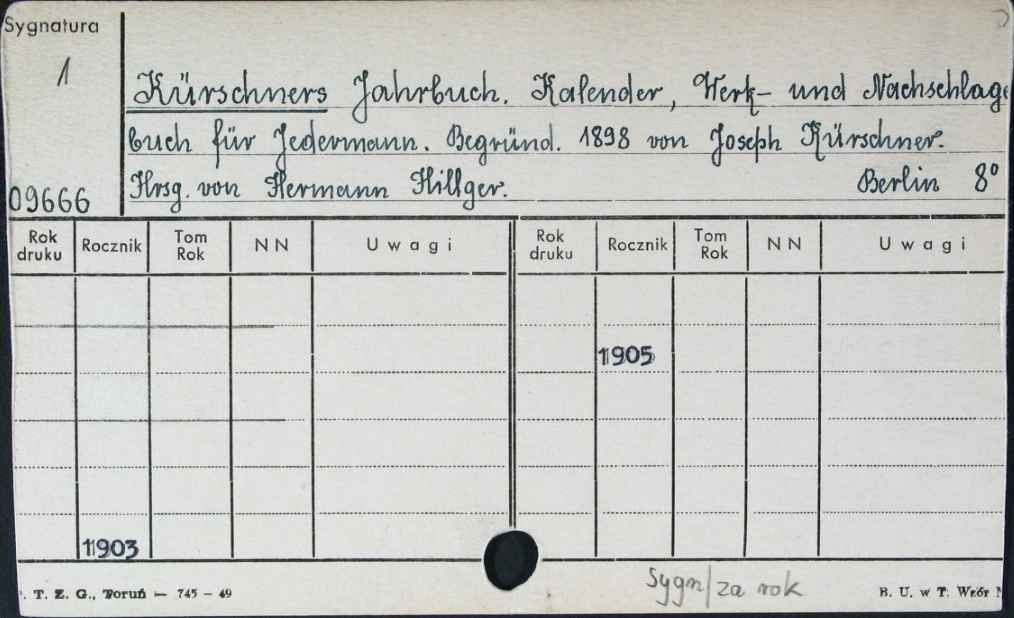 Sygnatura
1
Kürschners Jahrbuch. Kalender, Merk- und Nachschlage
buch für Jedermann. Begründ. 1898 von Joseph Kürschner.
Hrsg. von Hermann Hillger. Berlin 8°
09666
Rok druku Rocznik Tom Rok NN Uwagi Rok druku Rocznik Tom Rok NN Uwagi
1905
1903
Sygn/za rok
. T. Z. G., Toruń — 745 – 49 B. U. w T. Wzór